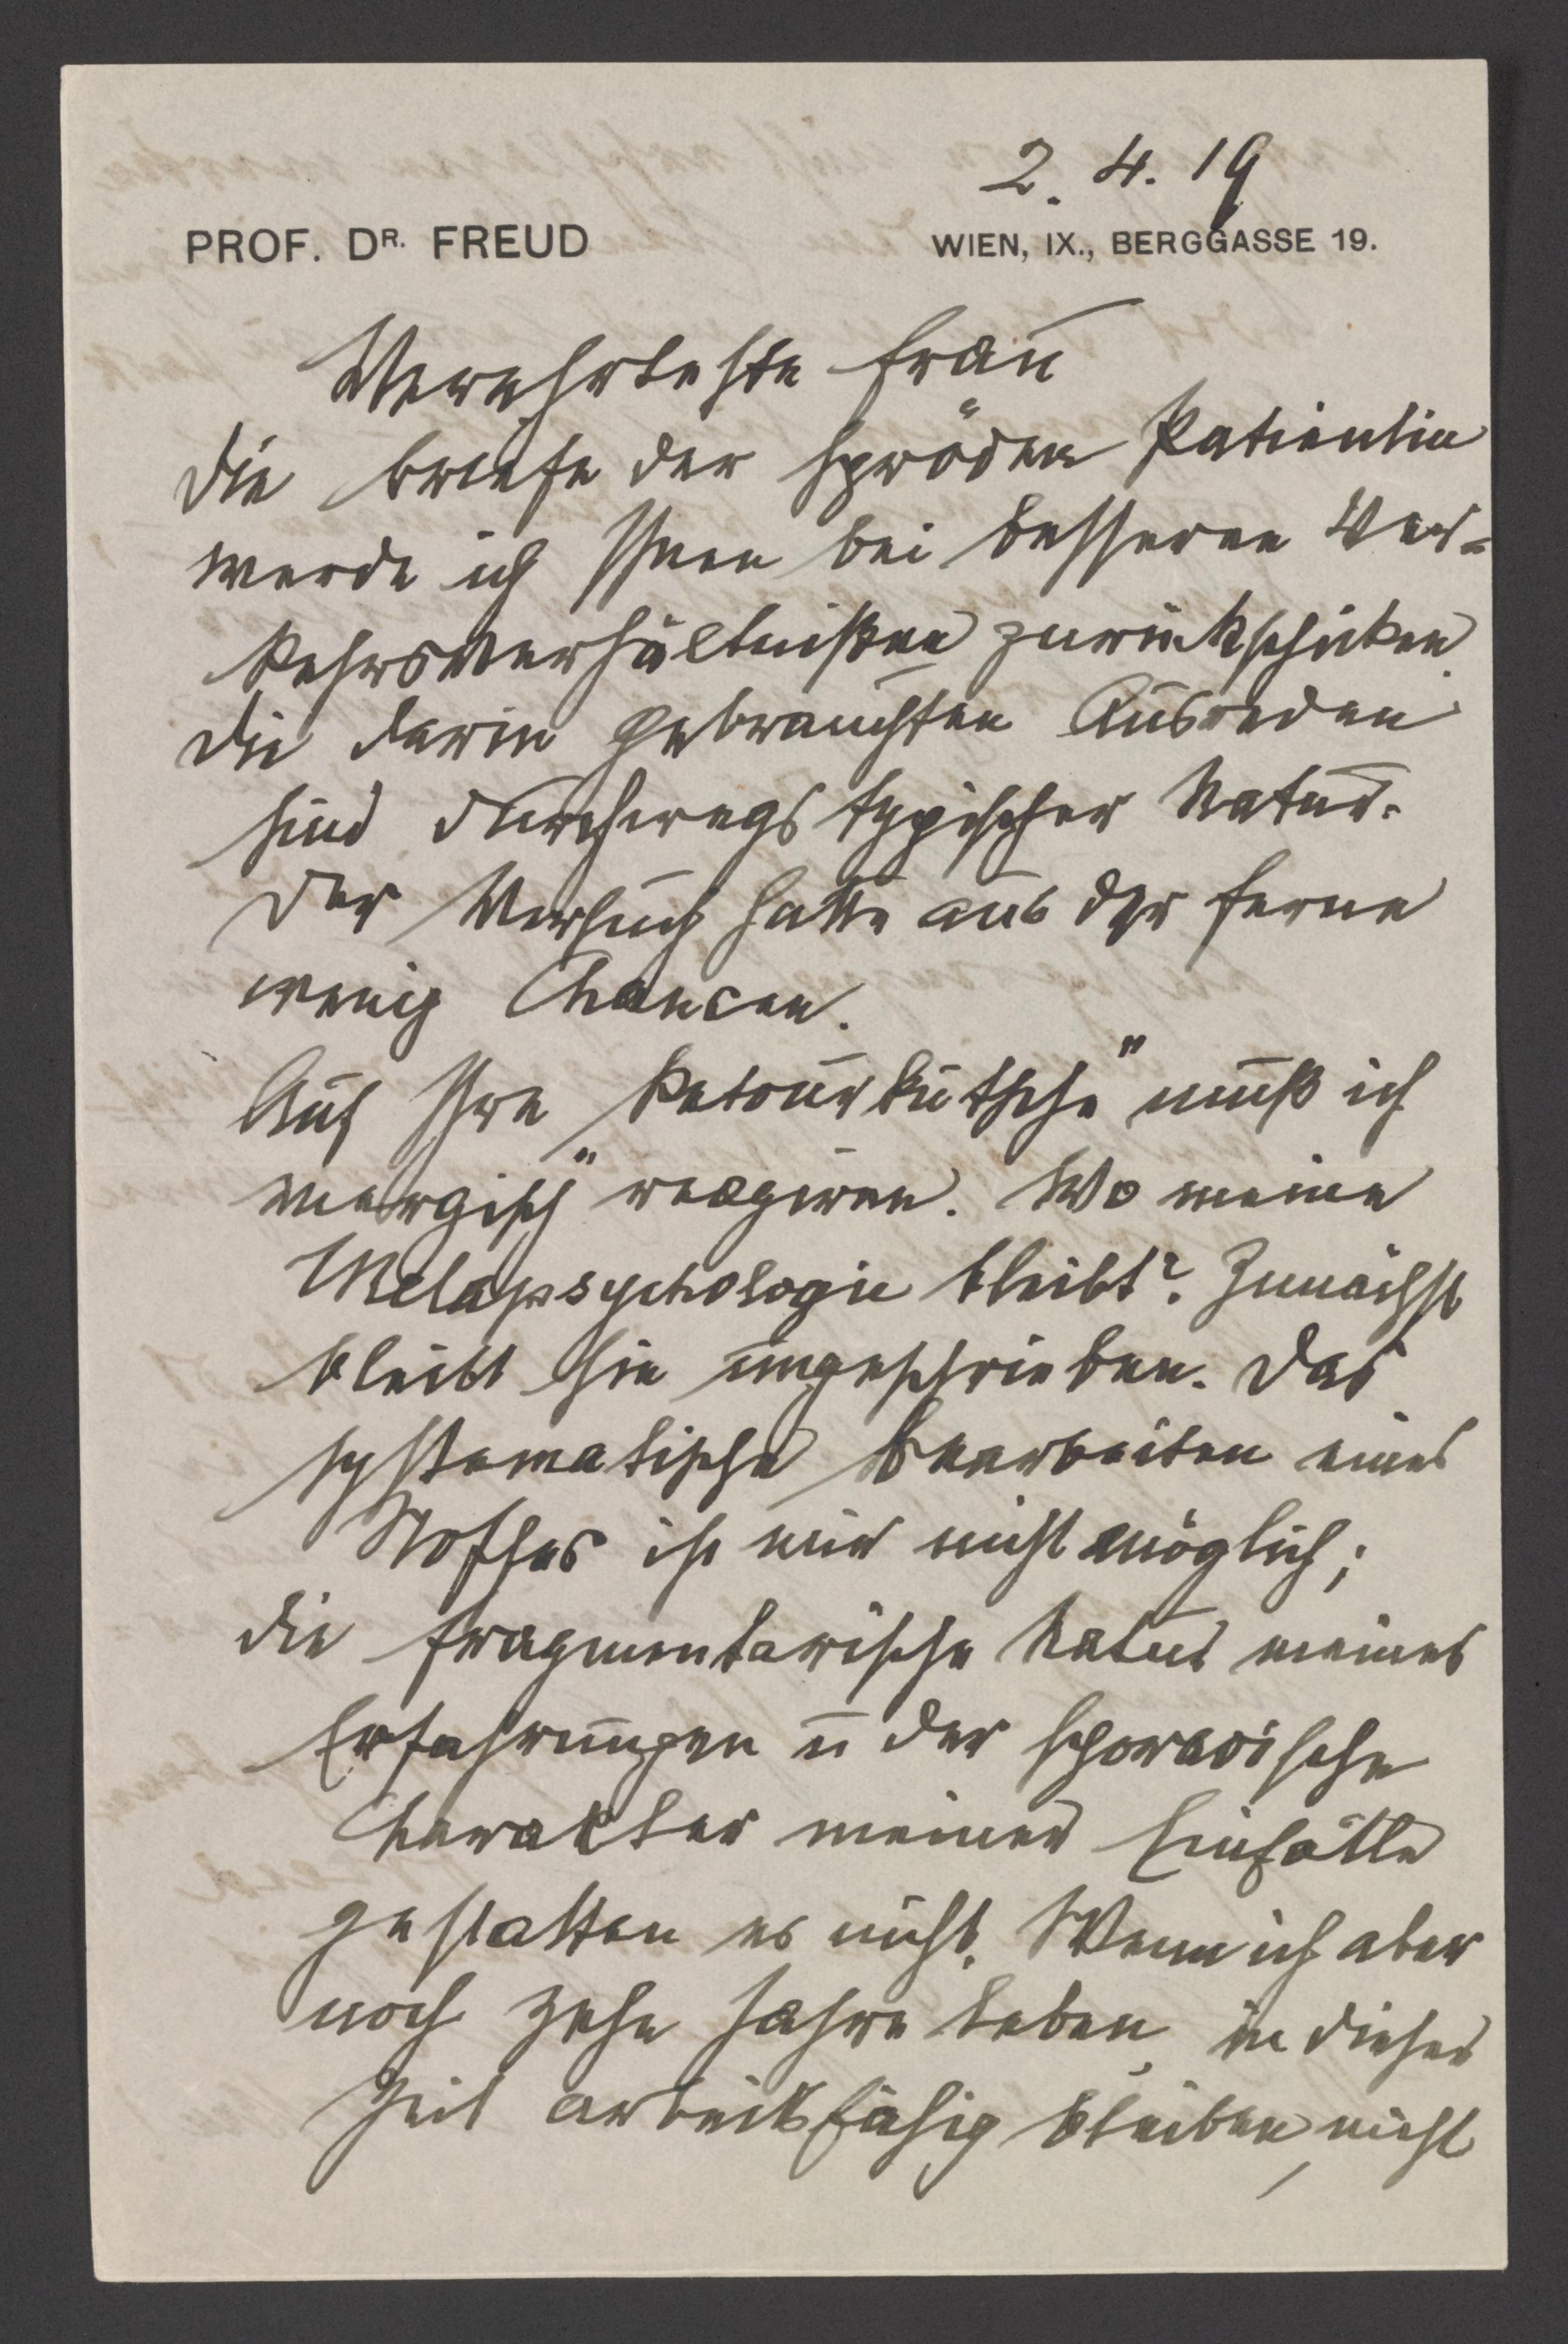 2. 4. 19
PROF. DR. FREUD WIEN, IX., BERGGASSE 19.
Verehrteste Frau
Die Briefe der spröden Patientin
werde ich Ihnen bei besseren Ver-
kehrsverhältnißen zurückschicken.
Die darin gebrauchten Ausreden
sind durchwegs typischer Natur.
Der Versuch hatte aus der Ferne
wenig Chancen.
Auf Ihre „Retourkutsche" muß ich
„energisch" reagiren. Wo meine
Metapsychologie bleibt? Zunächst
bleibt sie ungeschrieben. Das
systematische Bearbeiten eines
Stoffes ist mir nicht möglich;
die fragmentarische Natur meiner
Erfahrungen u der sporadische
Charakter meiner Einfälle
gestatten es nicht. Wenn ich aber
noch zehn Jahre leben, in dieser
Zeit arbeitsfähig bleiben, nicht